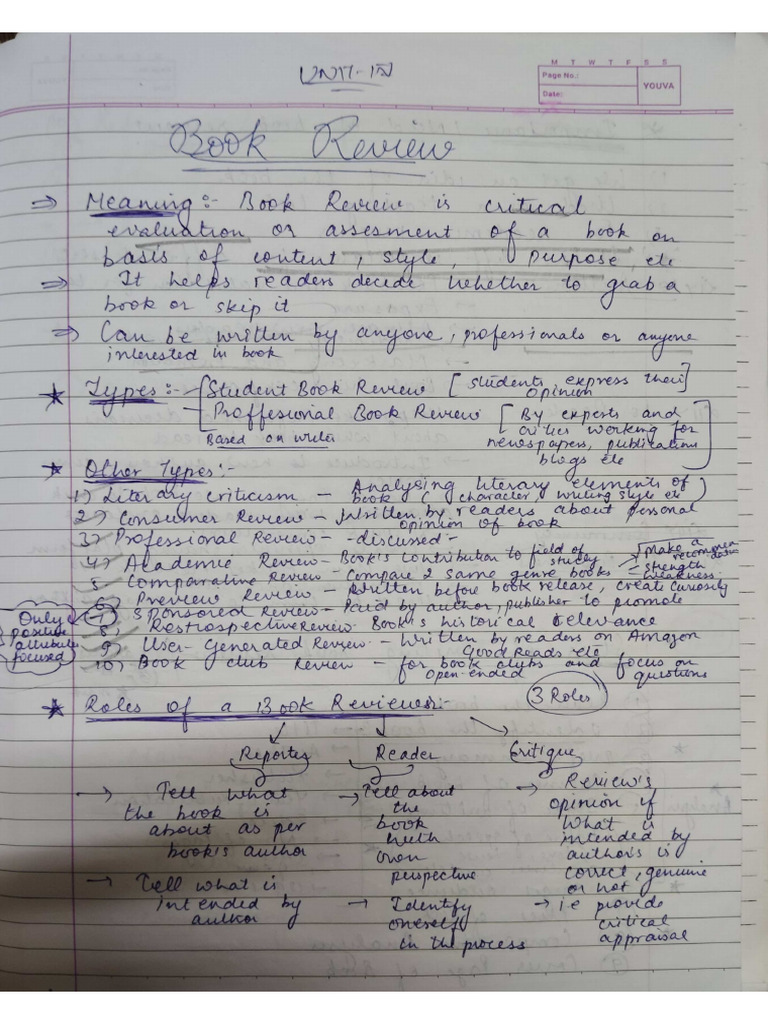 M T W T F S S
Page No.:
Date:
YOUVA
UNIT-IV
Book Review
⇒ Meaning:- Book Review is critical
evaluation or assesment of a book on
basis of content, style, purpose, etc
⇒ It helps readers decide whether to grab a
book or skip it
⇒ Can be written by anyone, professionals or anyone
interested in book
★ Types:- Student Book Review [students express their
opinion]
- Proffesional Book Review [By experts and
critics working for
newspapers, publication
blogs etc]
Based on writer
★ Other Types:-
1) Literary criticism - Analysing literary elements of
book (character, writing style etc)
2) Consumer Review - Written by readers about personal
opinion of book
3) Professional Review - -discussed-
4) Academic Review - Book's contribution to field of
study
5) Comparative Review - Compare 2 same genre books
make a
strength
weakness
6) Preview Review - Written before book release, create curiosity
7) Sponsored Review - Paid by author, publisher to promote
Only
positive
attributes
focused
8) Restrospective Review - Book's historical relevance
9) User-Generated Review - Written by readers on Amazon
Good Reads etc
10) Book club Review - for book clubs and focus on
open-ended questions
★ Roles of a Book Reviewer:-
3 Roles
Reporter Reader Critique
→ Tell what
the book is
about as per
book's author
→ Tell what is
intended by
author
→ Tell about
the
book
with
own
perspective
→ Identify
oneself
in the process
→ Review's
opinion if
what is
intended by
author's is
correct, genuine
or not
→ i.e provide
critical
appraisal